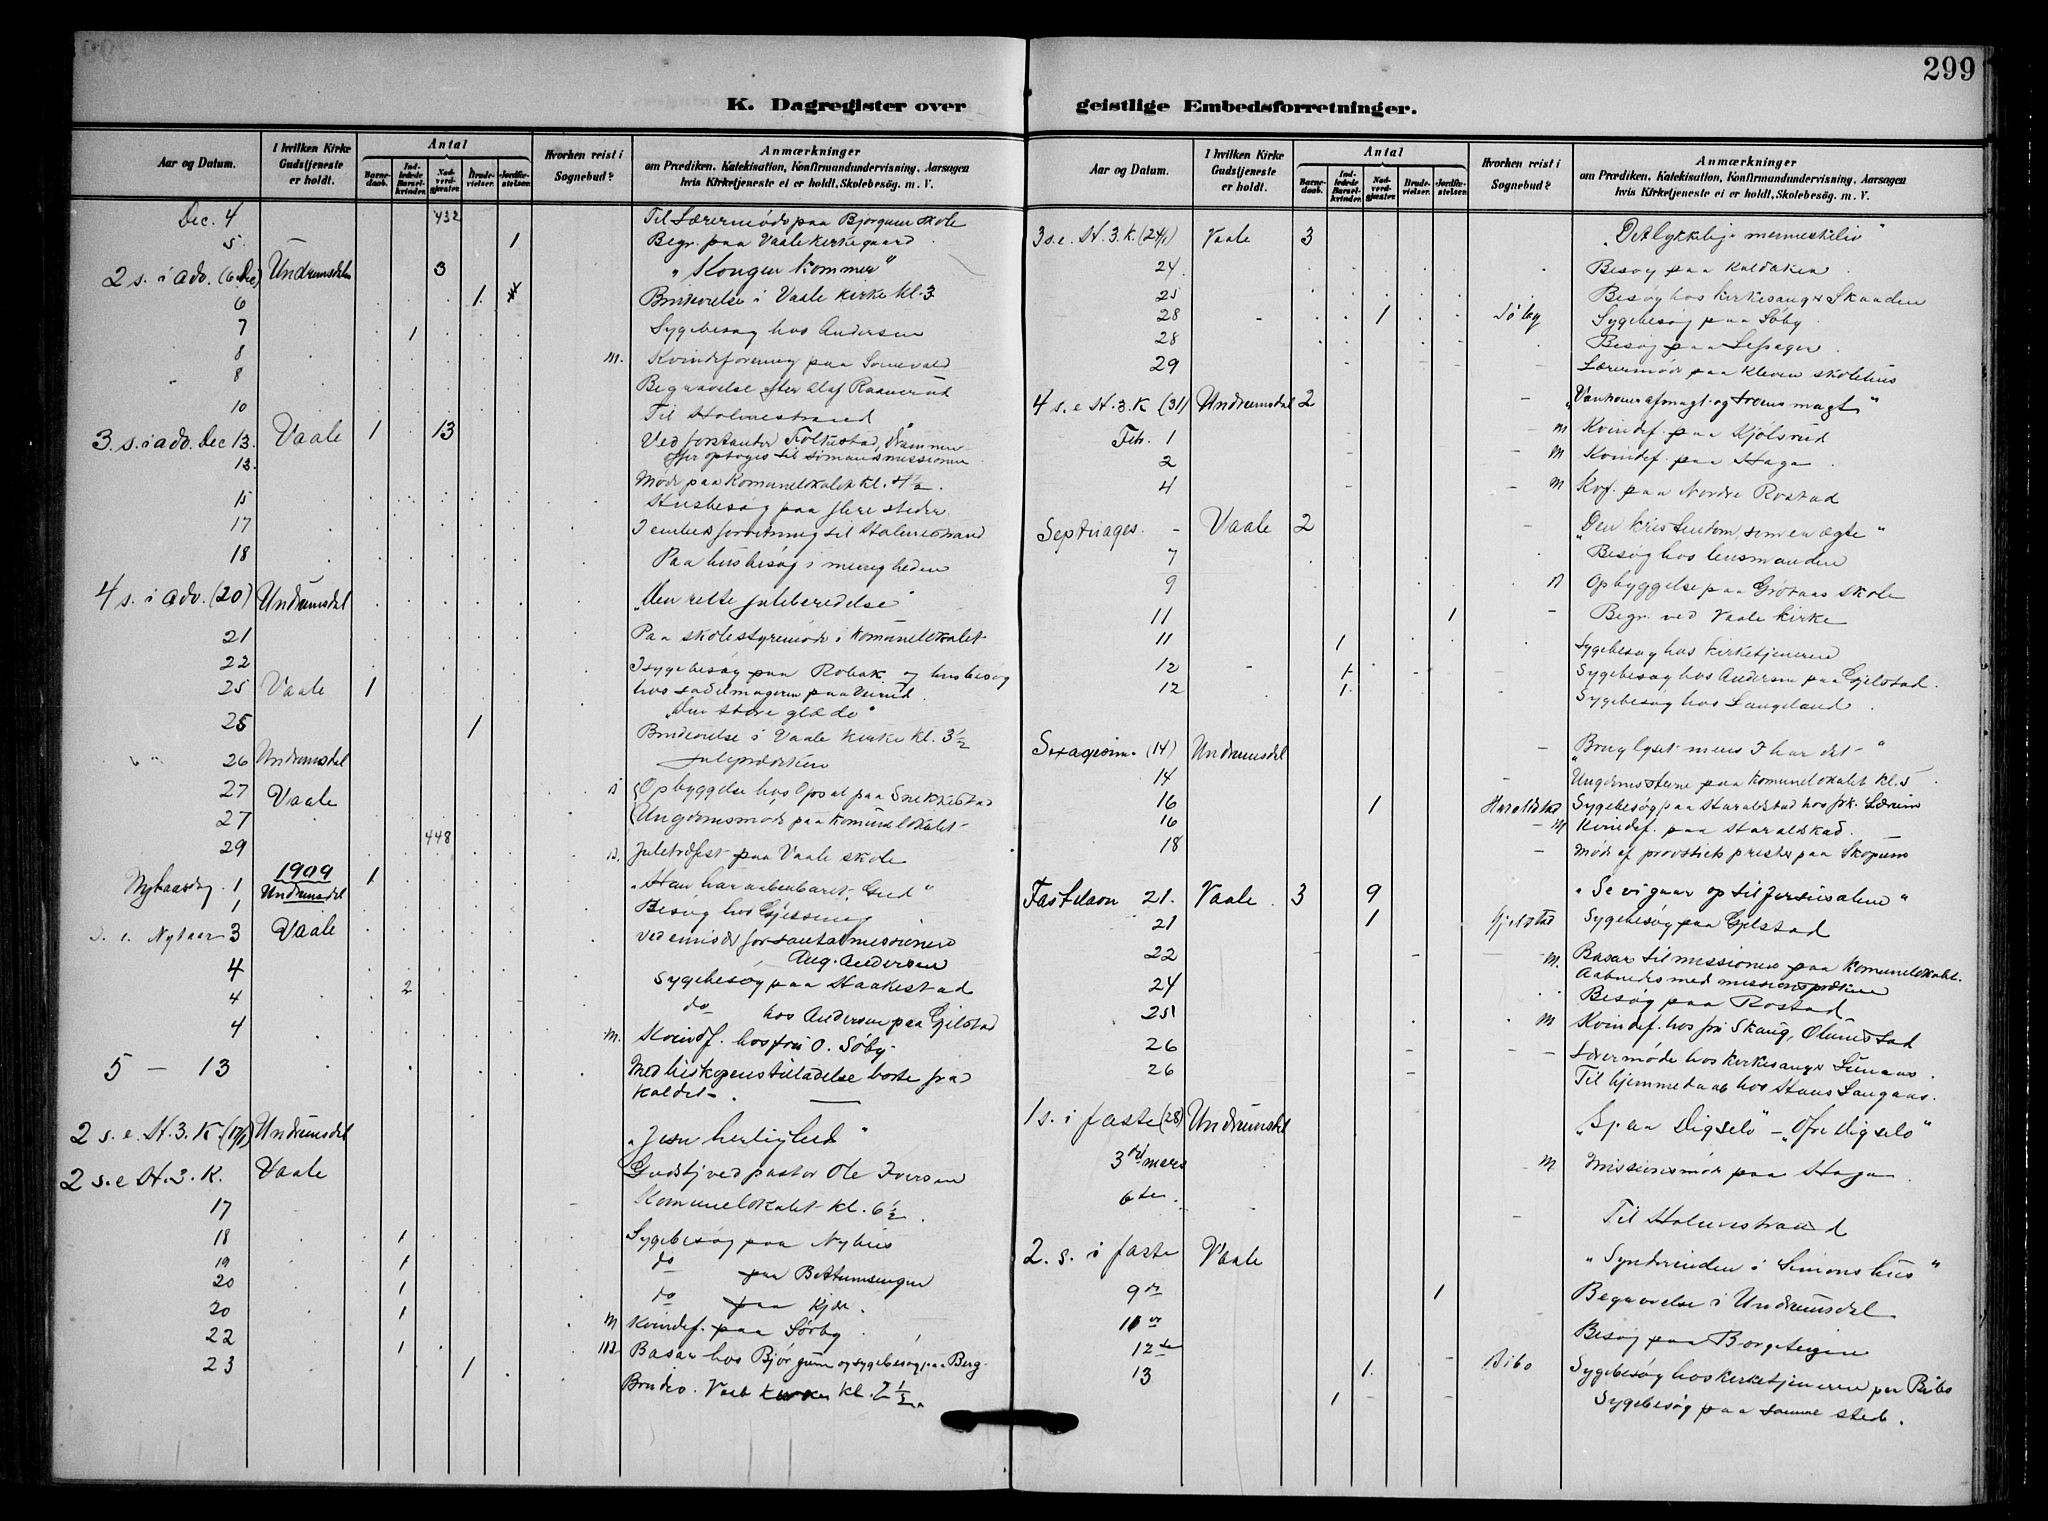 299
K. Dagregister over
Aar og Datum.
I hvilken Kirke Gudstjeneste er holdt.
Antal
Barnedaab.
Indledede Barselkvinder.
Nadverdgjæster.
Brudevielser.
Jordfæstelser.
Hvorhen reist i Sognebud?
Anmærkninger
om Prædiken, Katekisation, Konfirmandundervisning, Aarsagen
hvis Kirketjeneste ei er holdt, Skolebesøg. m. V.
Dec. 4 432 Til Lærermøde paa Bjørgum skole
5. 1 Begr. paa Vaale kirkegaard
2 s. i adv. (6 Dec) Undrumsdal 3 "Kongen kommer"
6 1. Brudevielse i Vaale kirke kl. 3
7 1 Sygebesøg hos Andersen
8 m. Kvindeforening paa Somevold
8 Begravelse efter Olaf
10 Til Holmestrand
3. s. i adv. Dec 13. Vaale 1 13 Ved forstander
13. offer optoges til sømandsmissionen
Møde paa Komunelokalet kl. 4½.
15 Husbesøg paa flere steder.
17 I embedsforretning til Holmestrand
18 Paa husbesøg i menigheden
4 s. i adv. (20) Undrumsdal "Den rette juleberedelse"
21 Paa skolestyremøde i komunelokalet
22 Isygebesøg paa Robak og husbesøg
25 Vaale 1 hos sadelmageren paa
"Den store glæde"
25 1 Brudevielse i Vaale kirke kl. 3½
26 Undrumsdal Juleprædiken
27 Vaale Opbyggelse hos Opsal paa Snekkestad
27 Ungdomsmøde paa komunelokalet
29 448 Juletræfest paa Vaale skole
1909
Nytaarsdag 1 Undrumsdal 1 "Han har aabenbaret Gud"
1 Besøg hos Gjessing
S. e. Nytaar 3 Vaale ved emisær for santalmissionen
Aug. Andersen
4 Sygebesøg paa Haakestad
4 2 do hos Andersen paa Gjelstad
4 m. Kvindf. hos fru O. Søby
5 – 13 Med biskopens tilladelse borte fra
kaldet.
2 s. e. H. 3. K. (17/1) Undrumsdal "Jesu herlighed"
2 s. e H. 3. K. Vaale Gudstj ved pastor Ole Iversen
17 Komunelokalet kl. 6½.
18 1 Sygebesøg paa Nyhus
19 1 do paa
20 1 do paa Kjær.
20 1 m Kvindef. paa Sørby.
22 1 Basar hos Bjørgum og sygebesøg paa Berg
23 1 Brudev. Vaale kirke kl.
geistlige Embedsforretninger.
Aar og Datum.
I hvilken Kirke Gudstjeneste er holdt.
Antal
Barnedaab.
Indledede Barselkvinder.
Nadverdgjæster.
Brudevielser.
Jordfæstelser.
Hvorhen reist i Sognebud?
Anmærkninger
om Prædiken, Katekisation, Konfirmandundervisning, Aarsagen
hvis Kirketjeneste ei er holdt, Skolebesøg. m. V.
3 s. e. H. 3. K. (24/1) Vaale 3 "Det lykkelige menneskeliv"
24 Besøg paa
25 Besøg hos kirkesanger Skaaden
28 1 Søby Sygebesøg paa Søby.
28 Besøg paa
29 Lærermøde paa Kleven skolehus
4 s. e H. 3. K (31) Undrumsdal 2 "Vantroens afmagt og troens magt"
Feb. 1 m Kvindef. paa Kjølsrud
2 m Kvindef. paa Haga
4 m Kvf. paa Nordre Rostad
Septuages. Vaale 2 "Den kristendom som en ægte"
7 Besøg hos lensmanden
9 Opbyggelse paa Grøtaas skole
11 1 Begr. ved Vaale kirke
11 1 Sygebesøg hos kirketjeneren
12 1 Sygebesøg hos Andersen paa Gjelstad.
12 1. Sygebesøg hos Langeland.
Sexagesima (14) Undrumsdal "Brug lyset mens I har det"
14 paa komunelokalet kl. 5
16 1 Haraldstad Sygebesøg paa Haraldstad hos frk.
16 m Kvindef. paa Haraldstad.
18 Møde af provstiets prester paa Skopum
Fastelavn 21. Vaale 3 9 "Se vi gaar op til Jerusalem"
21 1 Gjelstad Sygebesøg paa Gjelstad
22 m. Basar til missionen paa komunelokalet.
24 Aabnedes med missionsprædiken
25 Besøg paa Rostad
26 m Kvindef. hos fru Skaug,
26 Lærermøde hos kirkesanger
Til hjemmedaab hos Hans Langaas.
1 s. i faste (28) Undrumsdal
3die mars m Missionsmøde paa Haga
6te. Til Holmestrand
2. s. i faste Vaale "Synderinden i Simons hus"
9de 1 Begravelse i Undrumsdal
Besøg paa Borgeteigen
12te
13 1. Bibo Sygebesøg hos kirketjeneren paa Bibo
1 Sygebesøg paa samme sted.